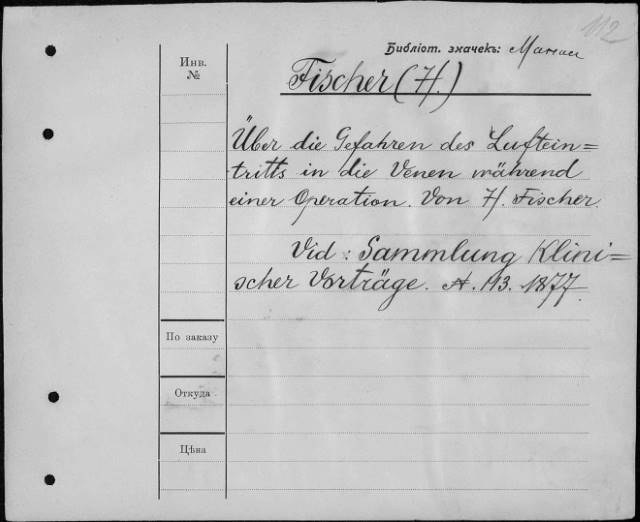 112
Библіот. значекъ:
Инв. №
Fischer (H.)
Über die Gefahren des Luftein=
tritts in die Venen während
einer Operation. Von H. Fischer.
Vid: Sammlung Klini=
scher Vorträge. №. 113. 1877.
По заказу
Откуда
Цѣна